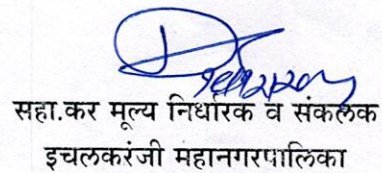 सहा.कर मूल्य निर्धारक व संकलक
इचलकरंजी महानगरपालिका